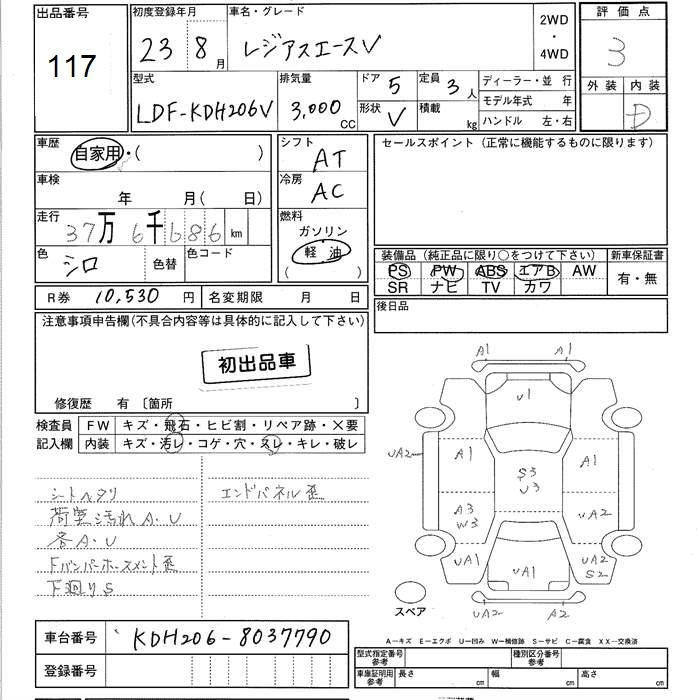 出品番号
117
初度登録年月
23 8月
車名・グレード
レジアスエースV
2WD
・
4WD
評価点
3
外装 内装
D
型式
LDF-KDH206V
排気量
3,000 CC
ドア 5
形状 V
定員 3人
積載 kg
ディーラー・並 行
モデル年式 年
ハンドル 左・右
車歴
自家用・( )
シフト
AT
セールスポイント (正常に機能するものに限ります)
車検
年 月( 日)
冷房
AC
走行
37万6千686 km
燃料
ガソリン
軽油
( )
色
シロ
色替
色コード
装備品 (純正品に限り○をつけて下さい)
新車保証書
PS PW ABS エアB AW
SR ナビ TV カワ
有・無
R券 10,530 円
名変期限 月 日
後日品
注意事項申告欄(不具合内容等は具体的に記入して下さい)
初出品車
修復歴 有 〔箇所 〕
検査員
記入欄
FW キズ・飛石・ヒビ割・リペア跡・×要
内装 キズ・汚レ・コゲ・穴・スレ・キレ・破レ
シートヘタリ
荷室汚れA.U
各A.U
Fバンパーホースメント歪
下廻りS
エンドパネル歪
A1 A1
U1
UA2
A1
A1
S3
U3
A3
W3
UA2
UA1
UA1
UA2
S2
スペア
UA2 A2
A―キズ E―エクボ U―凹み W―補修跡 S―サビ C―腐食 XX―交換済
車台番号
KDH206-8037790
登録番号
型式指定番号
参考
種別区分番号
参考
車庫証明用
参考
長さ cm
幅 cm
高さ cm